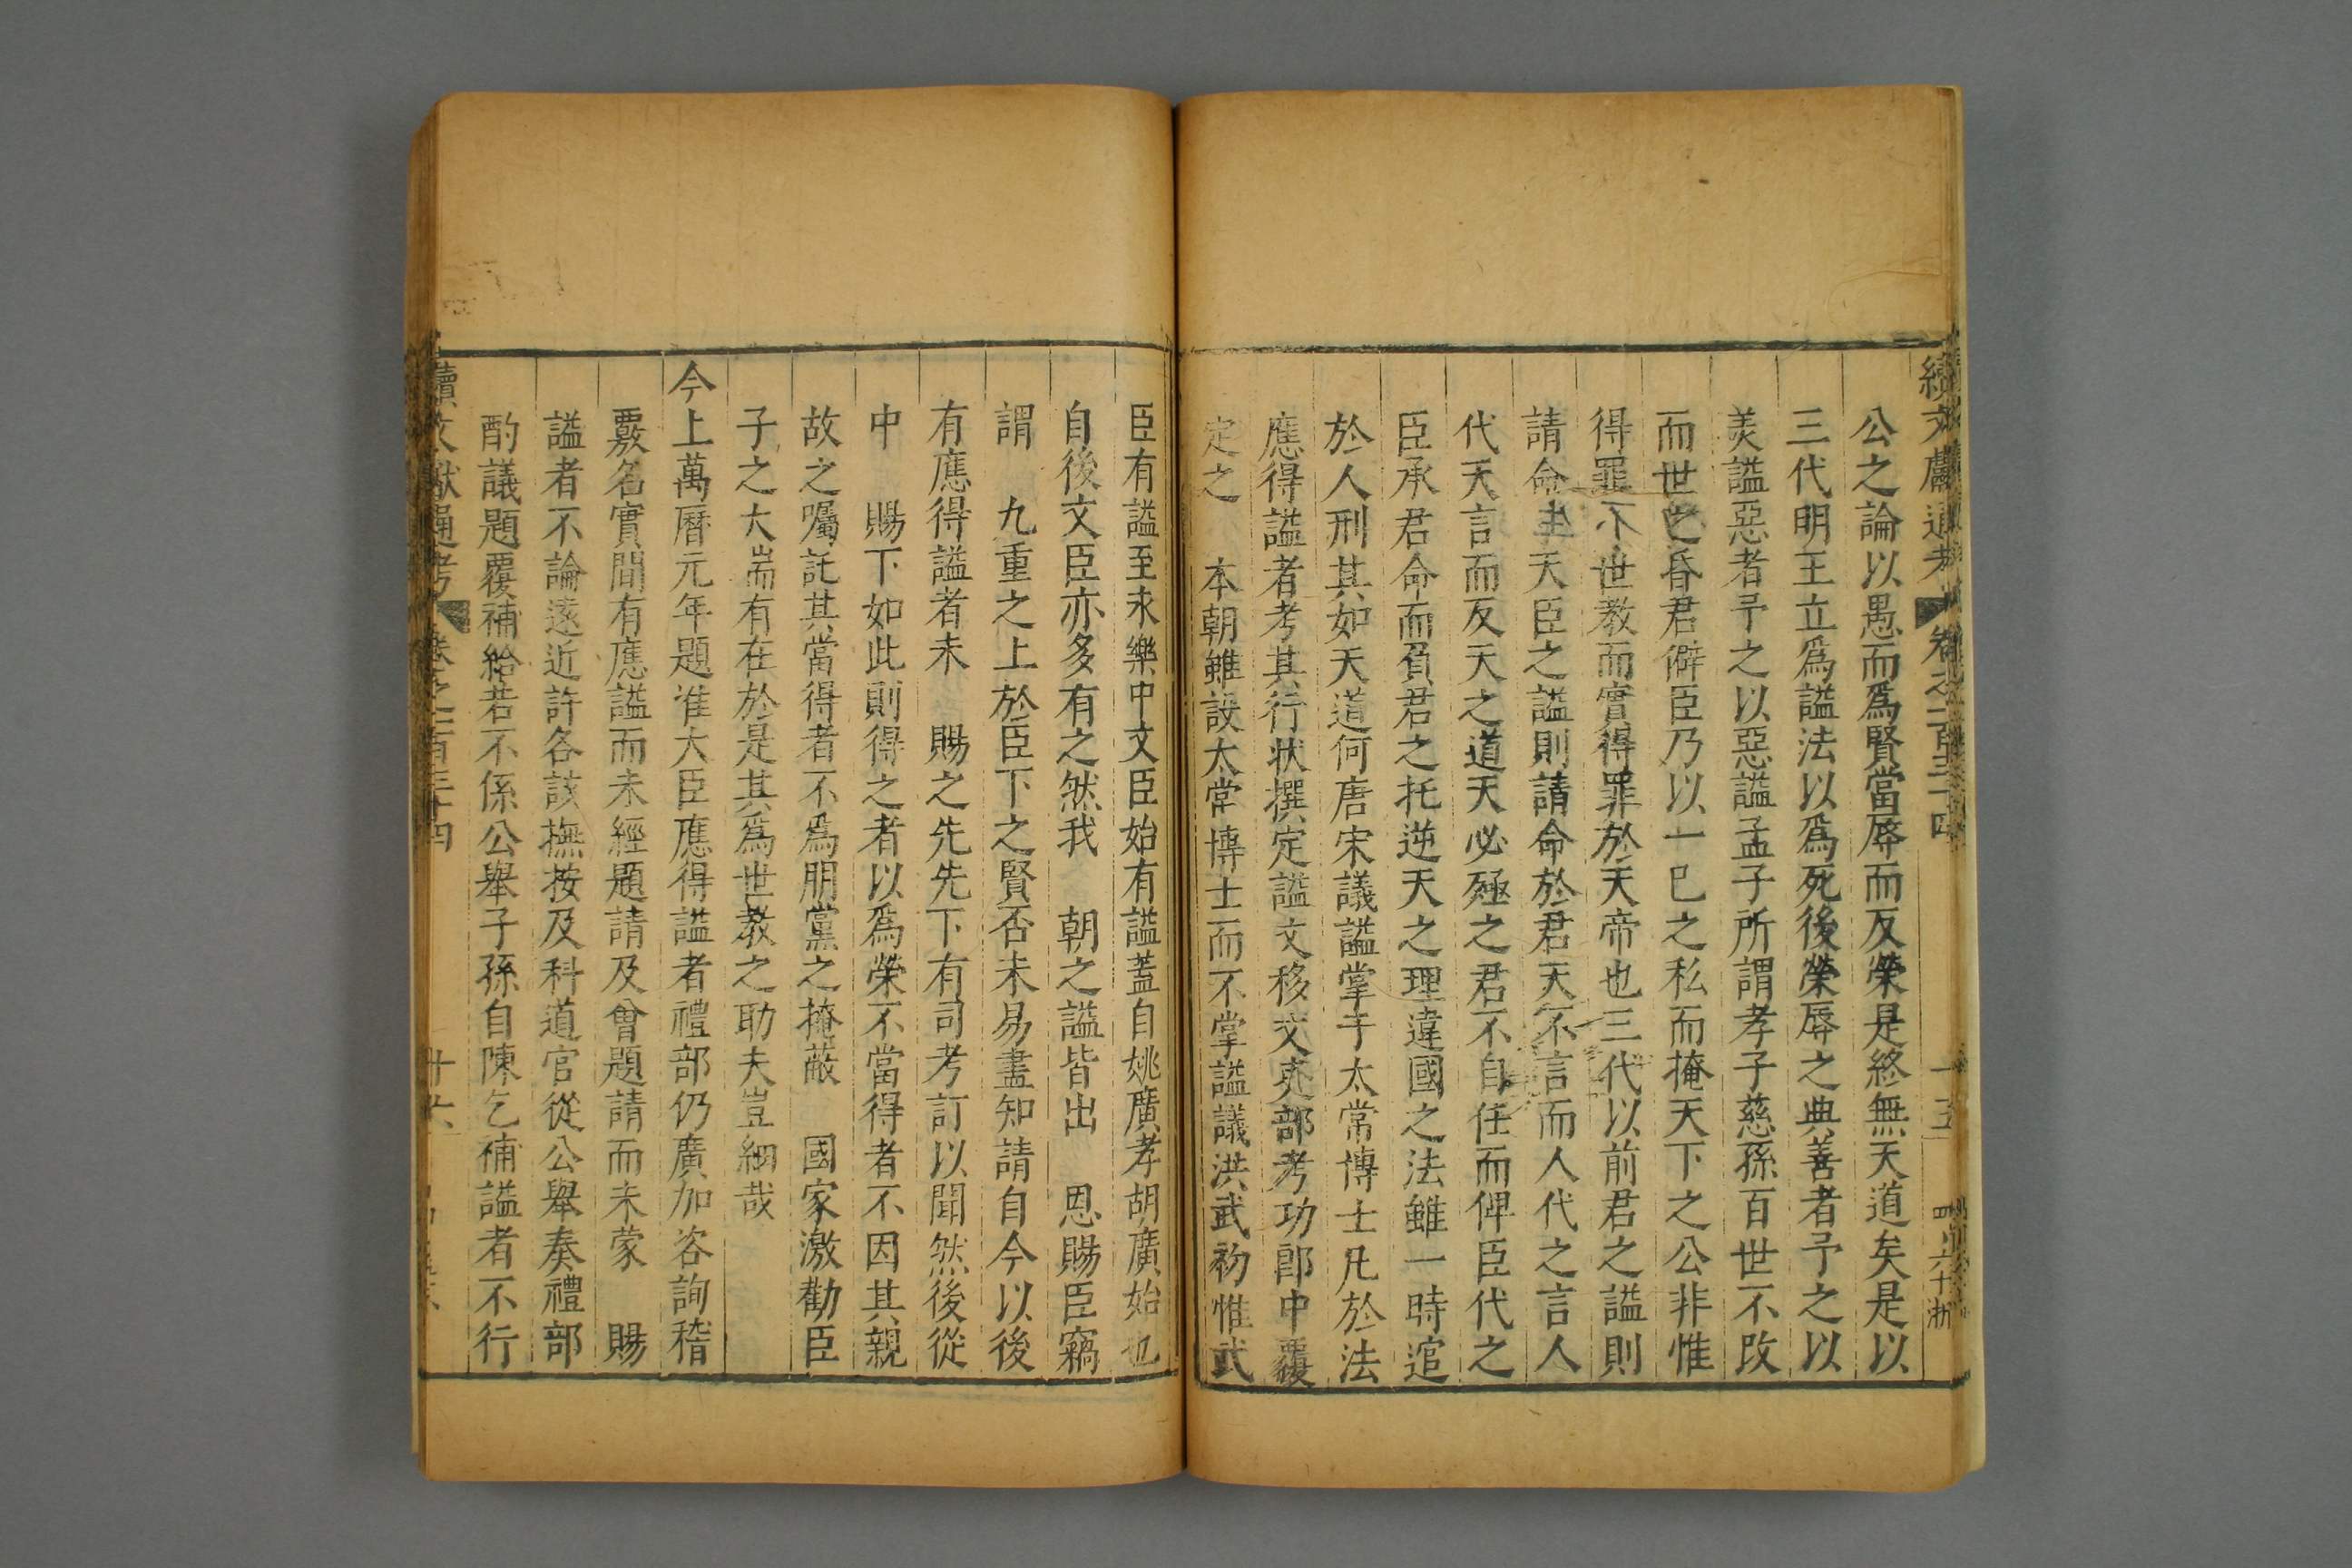 續文獻通考 卷之一百三十四 十五
公之論以愚而爲賢當辱而反榮是終無天道矣是以
三代明王立爲謚法以爲死後榮辱之典善者予之以
美謚惡者予之以惡謚孟子所謂孝子慈孫百世不改
而世之昏君僻臣乃以一己之私而掩天下之公非惟
得罪不世教而實得罪於天帝也三代以前君之謚則
請命主天臣之謚則請命於君天不言而人代之言人
代天言而反天之道天必殛之君不自任而俾臣代之
臣承君命而負君之托逆天之理違國之法雖一時逭
於人刑其如天道何唐宋議謚掌于太常博士凡於法
應得謚者考其行状撰定謚文移文吏部考功郎中覆
定之 本朝雖設太常博士而不掌謚議洪武初惟武
臣有謚至永樂中文臣始有謚蓋自姚廣孝胡廣始也
自後文臣亦多有之然我 朝之謚皆出 恩賜臣竊
謂 九重之上於臣下之賢否未易盡知請自今以後
有應得謚者未 賜之先先下有司考訂以聞然後從
中 賜下如此則得之者以爲榮不當得者不因其親
故之囑託其當得者不爲朋黨之掩蔽 國家激勸臣
子之大耑有在於是其爲世教之助夫豈細哉
今上萬曆元年題准大臣應得謚者禮部仍廣加咨詢稽
覈名實間有應謚而未經題請及曾題請而未蒙 賜
謚者不論遠近許各該撫按及科道官從公舉奏禮部
酌議題覆補給若不係公舉子孫自陳乞補謚者不行
續文獻通考 卷之一百三十四 十六